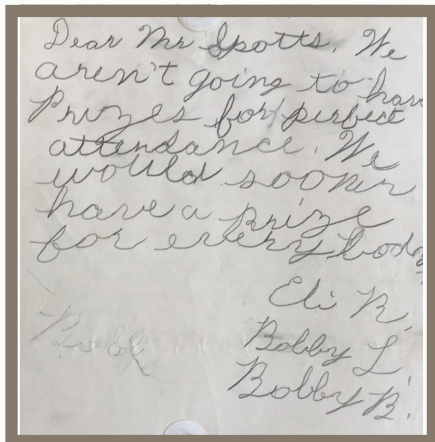 Dear Mr Spotts, We
aren't going to have
Prizes for perfect
attendance. We
would sooner
have a prize
for everybody
Eli R.
Bobby L
Bobby B.